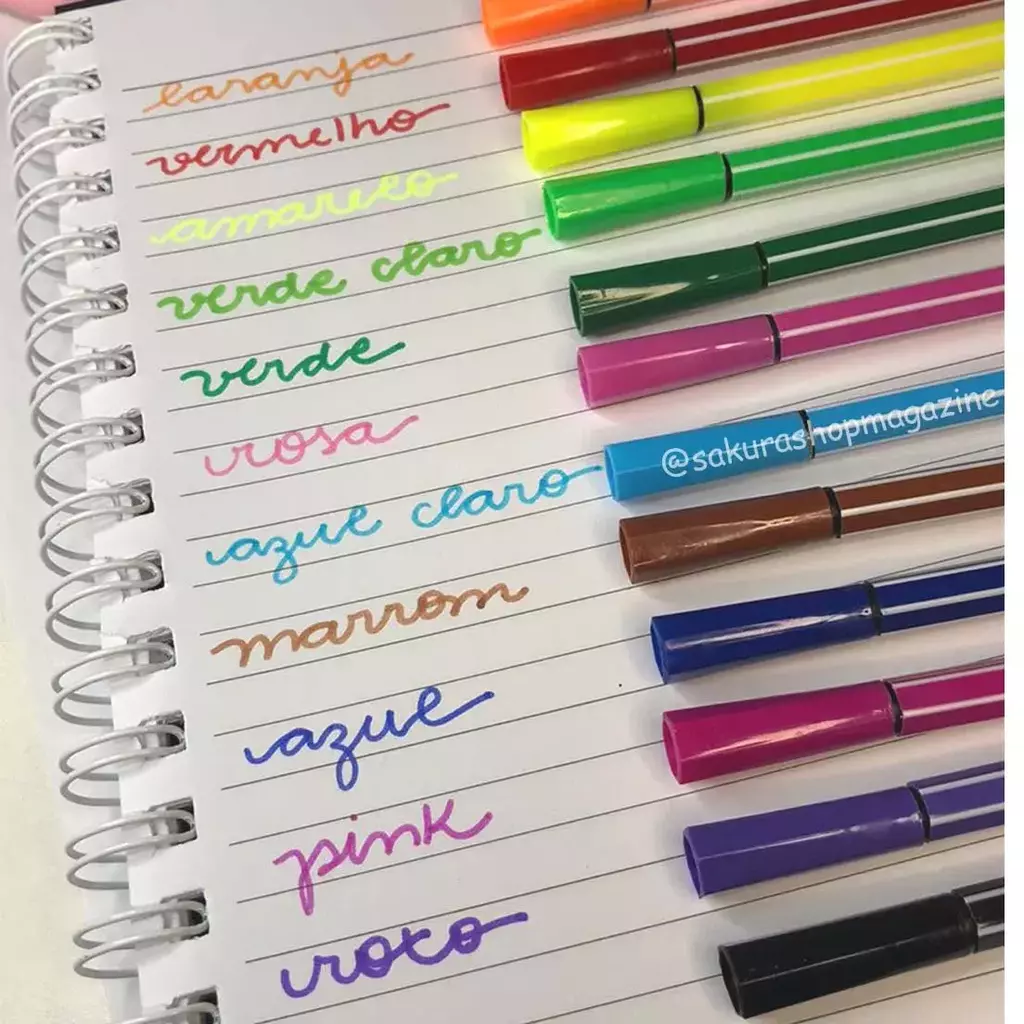 laranja
vermelho
amarelo
verde claro
verde
rosa
@sakurashopmagazine
azul claro
marrom
azul
pink
roxo